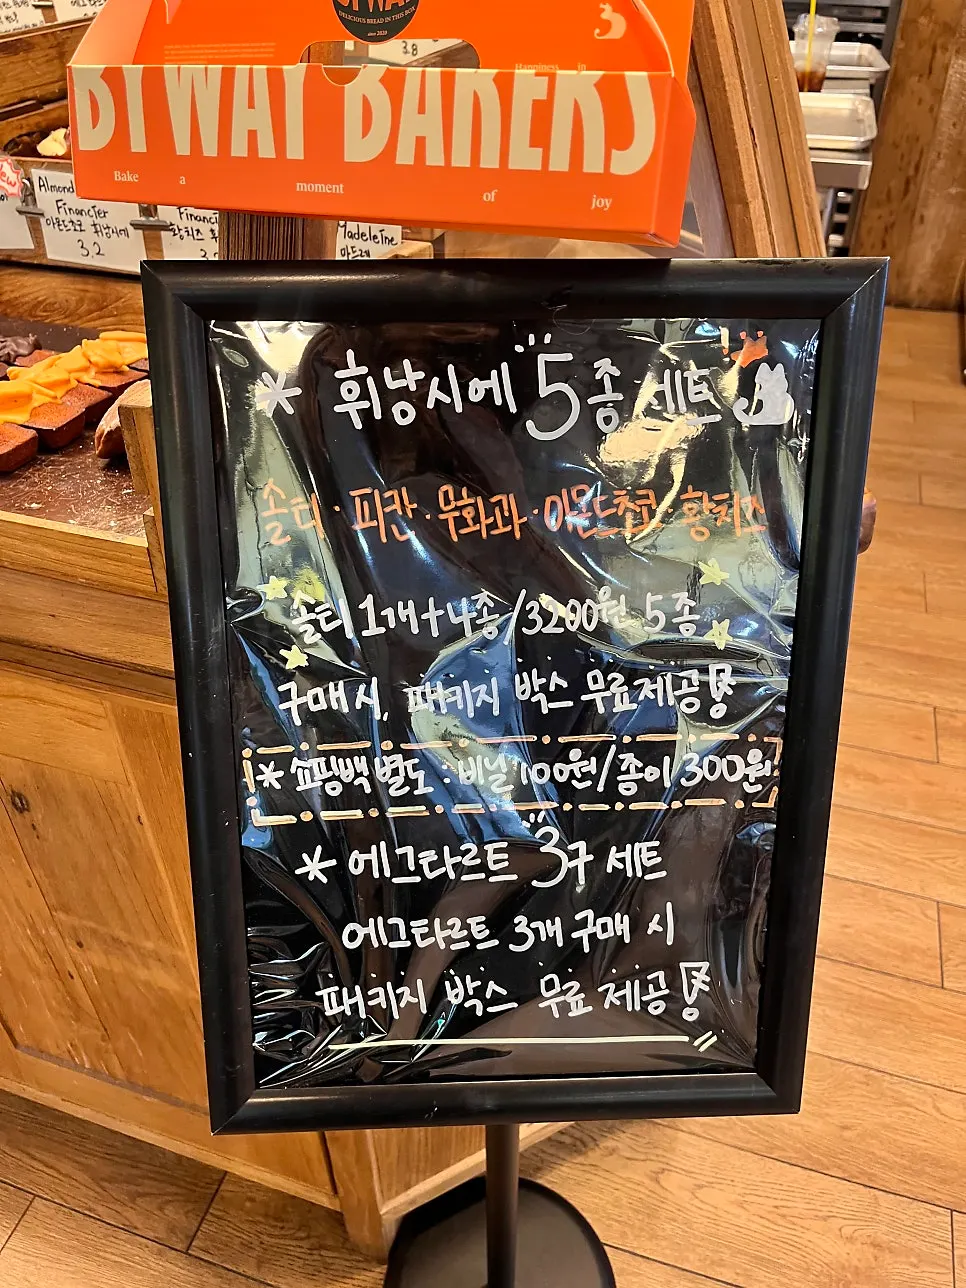 DELICIOUS BREAD IN THIS BOX
since 2020
3.8
Happiness in
BYWAY BAKERS
Bake a moment of joy
Almond
Financier
아몬드쵸코 휘낭시에
3.2
Financi
황치즈
Madeleine
* 휘낭시에 5종 세트
솔티 · 피칸 · 무화과 · 아몬드쵸코 · 황치즈
솔티 1개+4종 /3200원 5종
구매 시, 패키지 박스 무료제공
* 쇼핑백 별도 : 비닐 100원/종이 300원
* 에그타르트 3구 세트
에그타르트 3개 구매 시
패키지 박스 무료 제공